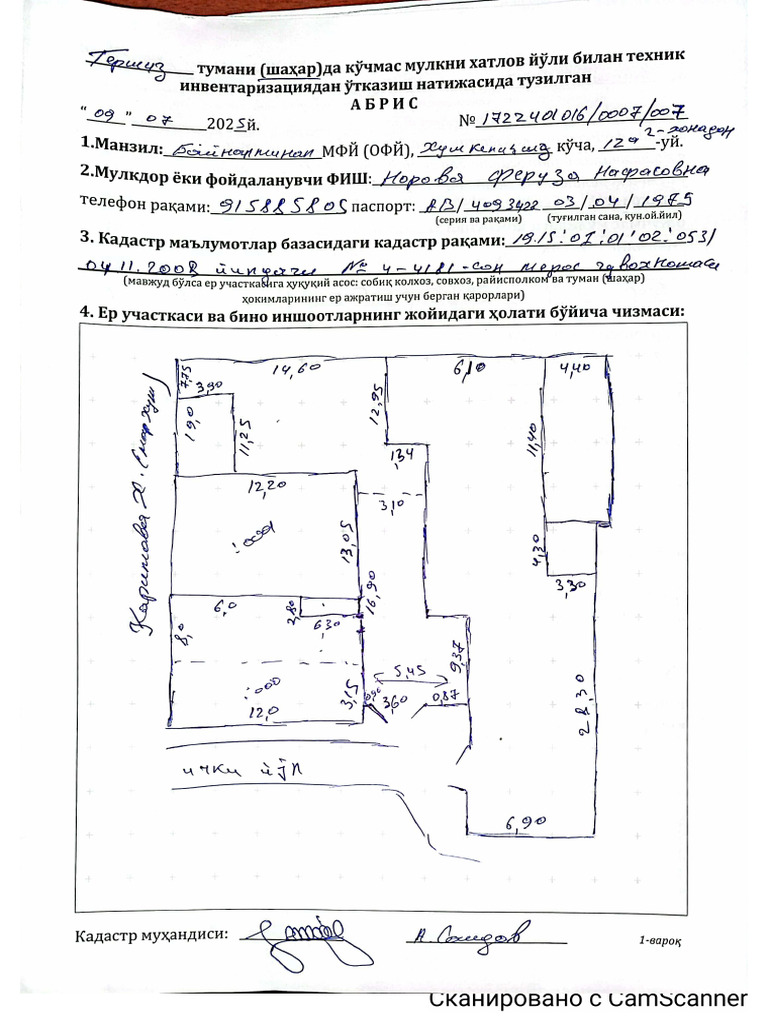 Термиз тумани (шаҳар)да кўчмас мулкни хатлов йўли билан техник
инвентаризациядан ўтказиш натижасида тузилган
АБРИС
"09" 07 2025й. № 1722401016/0007/007
2-хонадон
1.Манзил: МФЙ (ОФЙ), кўча, 129 -уй.
2.Мулкдор ёки фойдаланувчи ФИШ: Норова Феруза Нафасовна
телефон рақами: 915885805 паспорт: АВ/4093422 03/04/1975
(серия ва рақами) (туғилган сана, кун.ой.йил)
3. Кадастр маълумотлар базасидаги кадастр рақами: 19:15:01:01:02:053/
04.11.2008 йилдаги № 4-4181-сон мерос гувохномаси
(мавжуд бўлса ер участкасига ҳуқуқий асос: собиқ колхоз, совхоз, райисполком ва туман (шаҳар)
ҳокимларининг ер ажратиш учун берган қарорлари)
4. Ер участкаси ва бино иншоотларнинг жойидаги ҳолати бўйича чизмаси:
14,60
6,10
4,40
7,75
3,90
12,95
19,0
11,25
11,40
1,34
12,20
3,10
13,05
4,30
3,30
Каримова Х.
16,90
6,0
2,80
6,30
8,0
9,37
5,45
28,30
3,15
0,90
3,60
0,87
12,0
ички йўл
6,90
Кадастр муҳандиси: А. Саидов
1-варақ
Сканировано с CamScanner